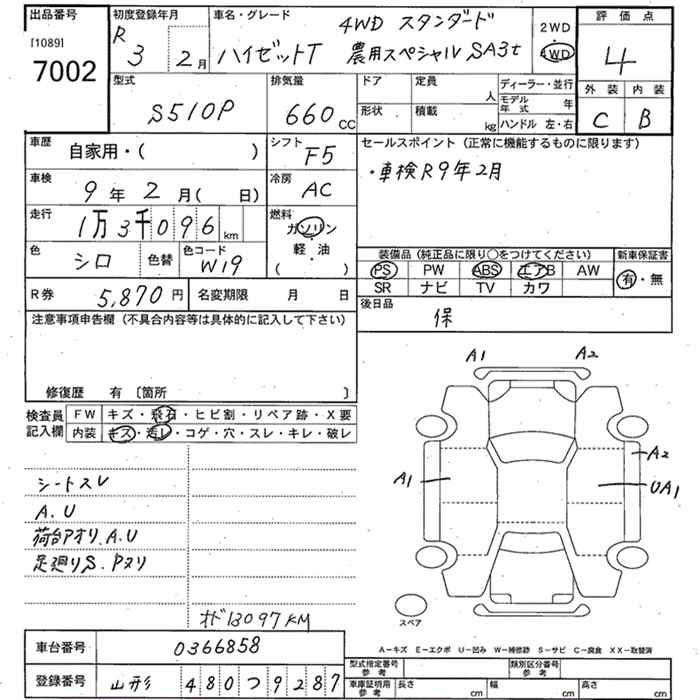 出品番号
[1089]
7002
初度登録年月
R 3 2月
車名・グレード
4WD スタンダード
ハイゼットT 農用スペシャル SA3t
2WD
4WD
評価点
4
外装 内装
C B
型式
S510P
排気量
660 cc
ドア 定員
人
形状 積載
kg
ディーラー・並行
モデル年式 年
ハンドル 左・右
車歴
自家用・( )
シフト
F5
車検
9年 2月( 日)
冷房
AC
走行
1万3千096km
燃料
ガソリン
軽・油
( )
色
シロ
色替
色コード
W19
セールスポイント (正常に機能するものに限ります)
・車検R9年2月
装備品 (純正品に限り○をつけてください)
PS PW ABS エアB AW
SR ナビ TV カワ
新車保証書
有・無
R券 5,870円
名変期限 月 日
後日品
保
注意事項申告欄 (不具合内容等は具体的に記入して下さい)
修復歴 有 〔箇所 〕
検査員記入欄
FW キズ・飛石・ヒビ割・リペア跡・X要
内装 キズ・汚レ・コゲ・穴・スレ・キレ・破レ
シートスレ
A.U
荷台アオリ.A.U
足廻りS.Pヌリ
オド13097KM
A1 A2
A2
A1
UA1
スペア
A-キズ E-エクボ U-凹み W-補修跡 S-サビ C-腐食 XX-取替済
車台番号
0366858
登録番号
山形 480つ9287
型式指定番号 参考
類別区分番号 参考
車庫証明用 参考
長さ cm 幅 cm 高さ cm